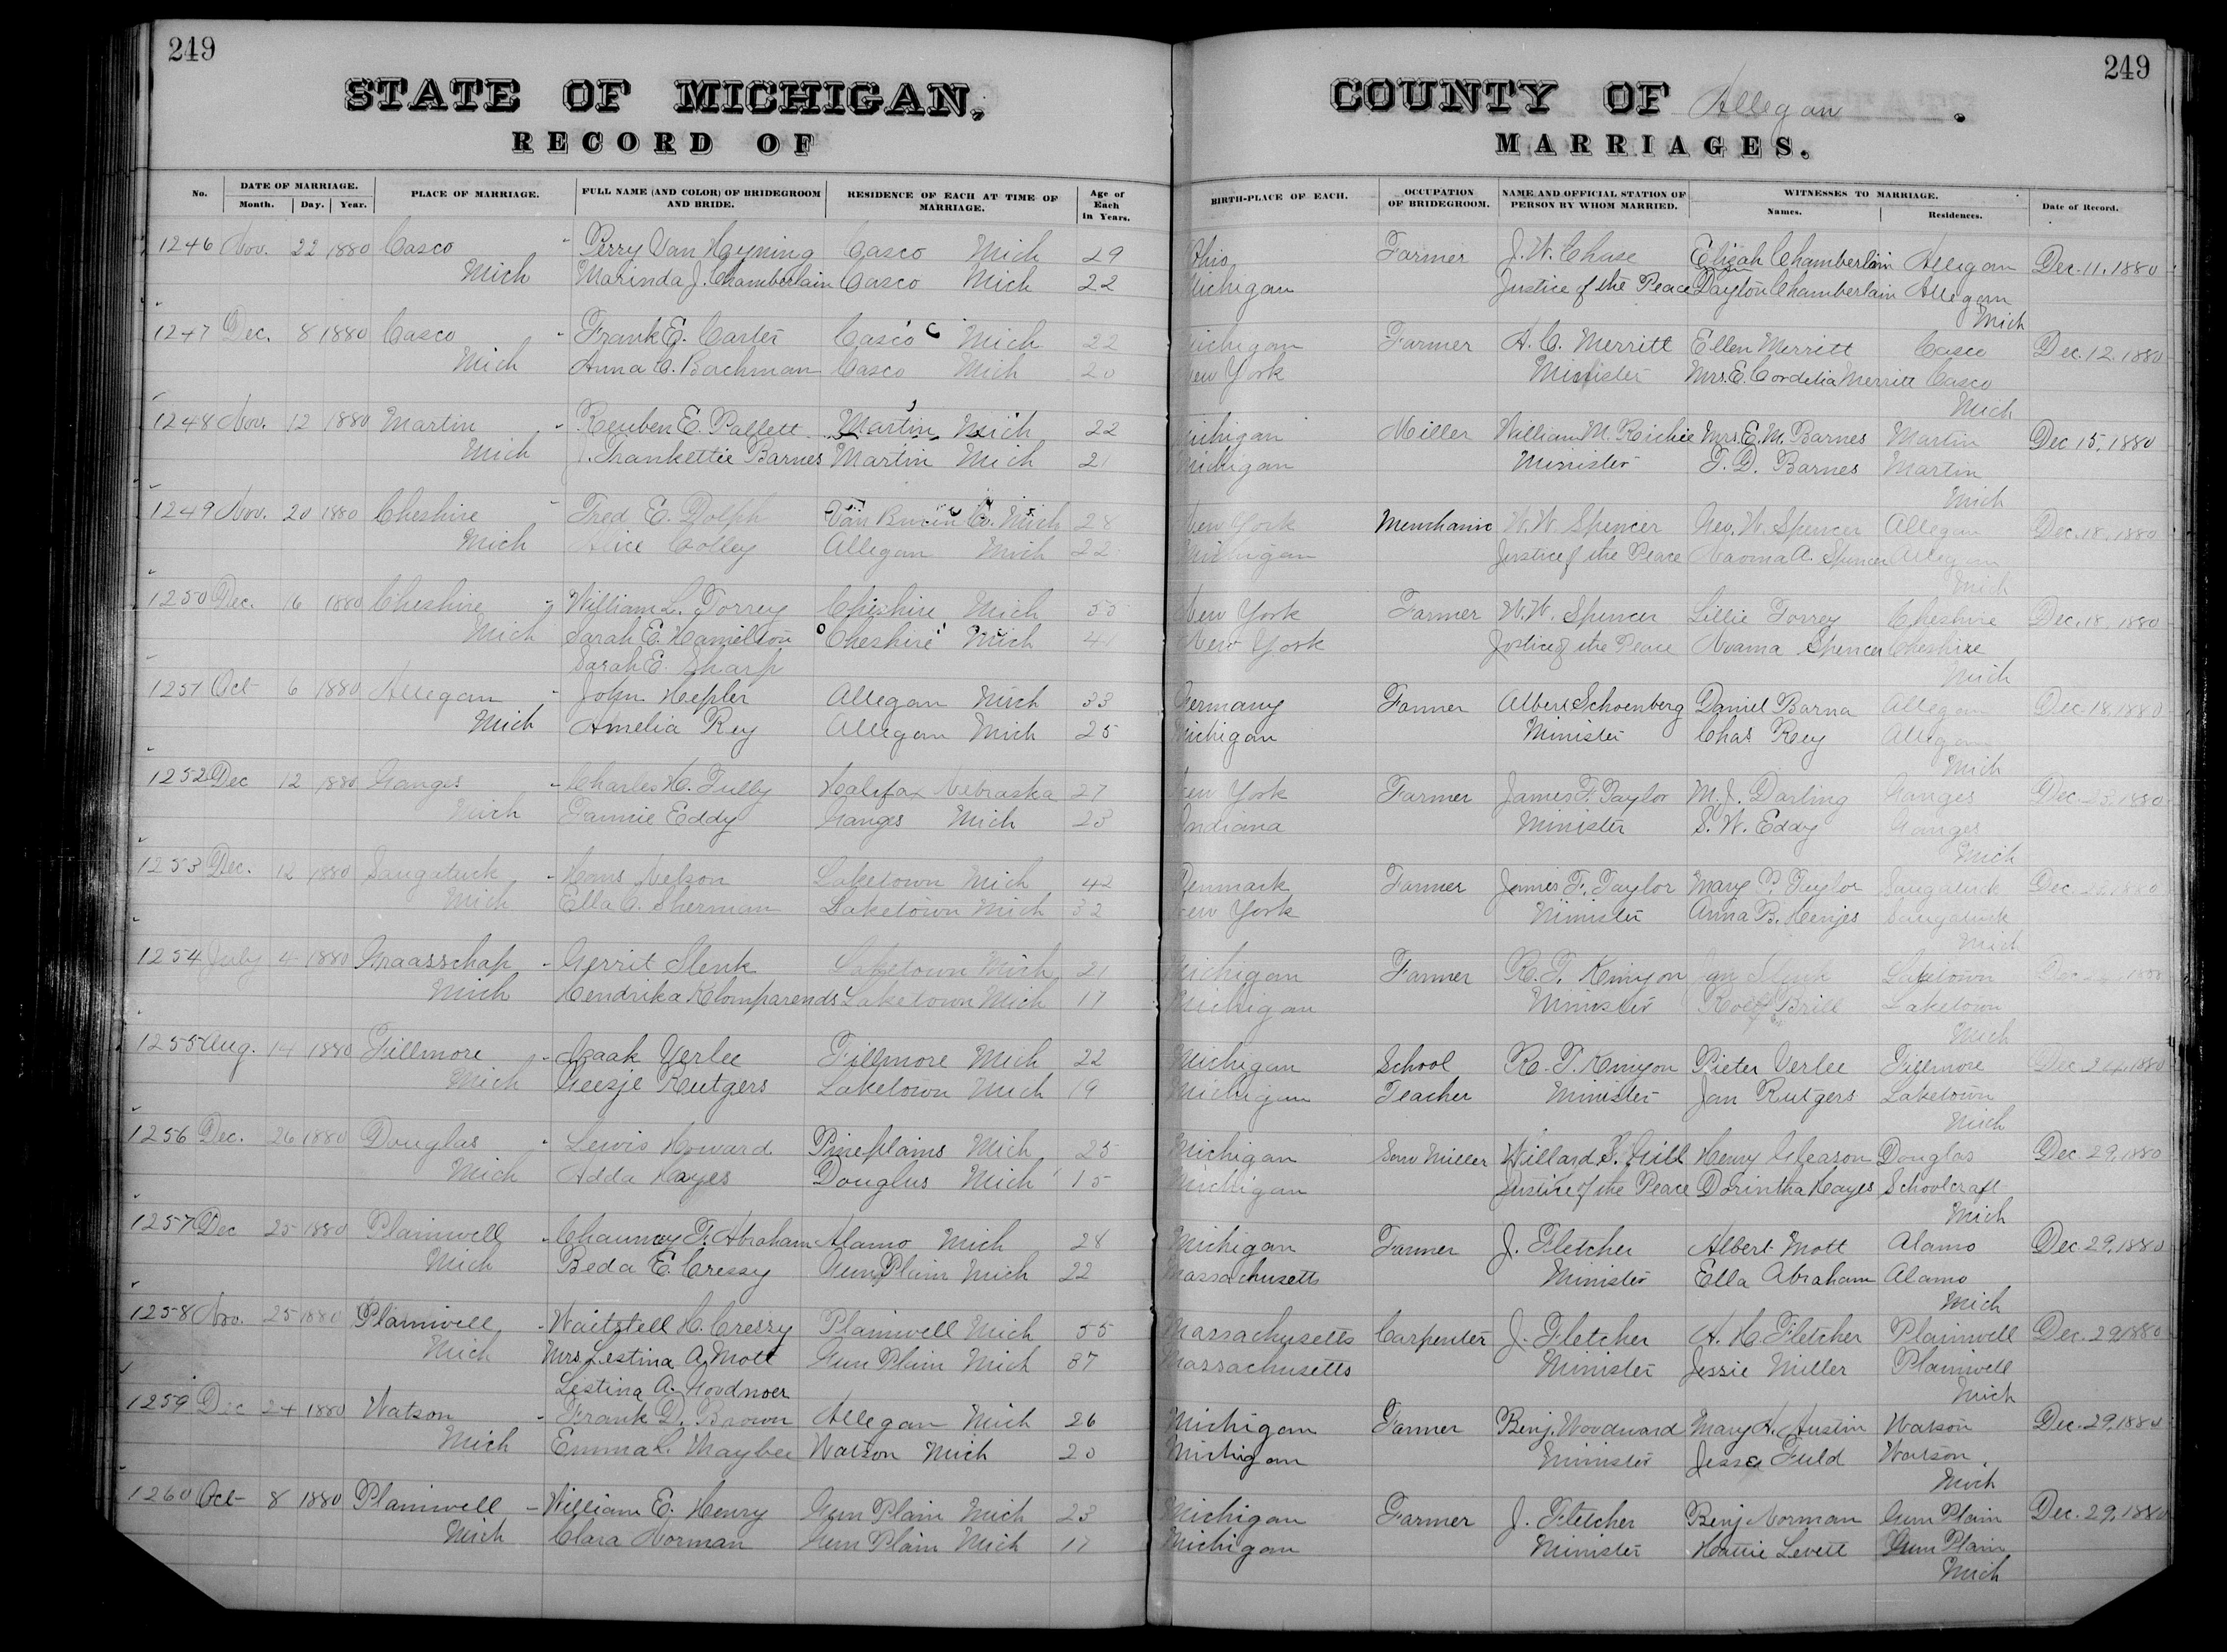 249
249
STATE OF MICHIGAN, COUNTY OF Allegan.
RECORD OF MARRIAGES.
No. DATE OF MARRIAGE. PLACE OF MARRIAGE. FULL NAME (AND COLOR) OF BRIDEGROOM AND BRIDE. RESIDENCE OF EACH AT TIME OF MARRIAGE. Age of Each in Years. BIRTH-PLACE OF EACH. OCCUPATION OF BRIDEGROOM. NAME AND OFFICIAL STATION OF PERSON BY WHOM MARRIED. WITNESSES TO MARRIAGE. Date of Record.
Month. Day. Year. Names. Residences.
1246 Nov. 22 1880 Casco Perry Van Heyning Casco Mich 29 Ohio Farmer J. W. Chase Elijah Chamberlain Allegan Dec. 11, 1880
Mich Marinda J. Chamberlain Casco Mich 22 Michigan Justice of the Peace Dayton Chamberlain Allegan
Mich
1247 Dec. 8 1880 Casco Frank E. Carter Casco Mich 22 Michigan Farmer A. C. Merritt Ellen Merritt Casco Dec. 12, 1880
Mich Anna C. Bachman Casco Mich 20 New York Minister Mrs. E. Cordelia Merritt Casco
Mich
1248 Nov. 12 1880 Martin Reuben E. Pallett Martin Mich 22 Michigan Miller William M. Richie Mrs. E. M. Barnes Martin Dec 15, 1880
Mich Frankettie Barnes Martin Mich 21 Michigan Minister F. D. Barnes Martin
Mich
1249 Nov. 20 1880 Cheshire Fred E. Dolph Van Buren Co. Mich 28 New York W. W. Spencer Geo. W. Spencer Allegan Dec. 18, 1880
Mich Alice Colley Allegan Mich 22 Michigan Justice of the Peace Naoma A. Spencer Allegan
Mich
1250 Dec. 16 1880 Cheshire William L. Torrey Cheshire Mich 55 New York Farmer W. W. Spencer Lillie Torrey Cheshire Dec. 18, 1880
Mich Sarah E. Hamilton Cheshire Mich 41 New York Justice of the Peace Noama Spencer Cheshire
Sarah E. Sharp Mich
1251 Oct 6 1880 Allegan John Hepler Allegan Mich 33 Germany Farmer Albert Schoenberg Daniel Barna Allegan Dec. 18, 1880
Mich Amelia Rey Allegan Mich 25 Michigan Minister Chas Rey Allegan
Mich
1252 Dec 12 1880 Ganges Charles H. Tully Halifax Nebraska 27 New York Farmer James F. Taylor M. J. Darling Ganges Dec. 1880
Mich Fannie Eddy Ganges Mich 23 Indiana Minister S. W. Eddy Ganges
Mich
1253 Dec. 12 1880 Saugatuck Hans Nelson Laketown Mich 42 Denmark Farmer James F. Taylor Mary P. Taylor Saugatuck Dec. 1880
Mich Ella C. Sherman Laketown Mich 32 New York Minister Anna B. Henjes Saugatuck
Mich
1254 July 4 1880 Graasschap Gerrit Slenk Laketown Mich 21 Michigan Farmer Jan Slenk Laketown Dec. 1880
Mich Hendrika Klomparends Laketown Mich 17 Michigan Minister Brill Laketown
Mich
1255 Aug. 14 1880 Fillmore Izaak Verlee Fillmore Mich 22 Michigan School Pieter Verlee Fillmore Dec. 24, 1880
Mich Geesje Rutgers Laketown Mich 19 Michigan Teacher Minister Jan Rutgers Laketown
Mich
1256 Dec. 26 1880 Douglas Lewis Howard Pineplains Mich 25 Michigan Saw Miller Willard S. Gill Henry Gleason Douglas Dec. 29, 1880
Mich Adda Hayes Douglas Mich 15 Michigan Justice of the Peace Dorintha Hayes Schoolcraft
Mich
1257 Dec 25 1880 Plainwell Chauncy F. Abraham Alamo Mich 24 Michigan Farmer J. Fletcher Albert Mott Alamo Dec 29, 1880
Mich Beda E. Cressy Gun Plain Mich 22 Massachusetts Minister Ella Abraham Alamo
Mich
1258 Nov. 25 1880 Plainwell Waitstell H. Cressy Plainwell Mich 55 Massachusetts Carpenter J. Fletcher A. H. Fletcher Plainwell Dec. 29, 1880
Mich Mrs. Lestina A. Mott Gun Plain Mich 37 Massachusetts Minister Jessie Miller Plainwell
Listina A. Goodnoer Mich
1259 Dec 24 1880 Watson Frank D. Brown Allegan Mich 26 Michigan Farmer Benj. Woodward Mary A. Austin Watson Dec. 29, 1880
Mich Emma L. Maybee Watson Mich 20 Michigan Minister Jesse Watson
Mich
1260 Oct 8 1880 Plainwell William E. Henry Gun Plain Mich 23 Michigan Farmer J. Fletcher Benj Norman Gun Plain Dec. 29, 1880
Mich Clara Norman Gun Plain Mich 17 Michigan Minister Hattie Levett Gun Plain
Mich